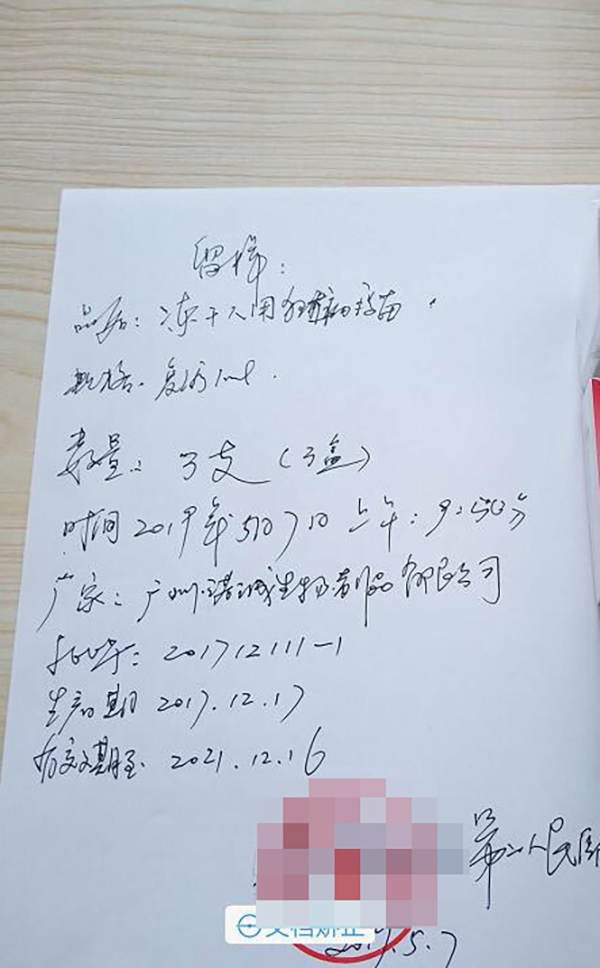 留样:
品名: 冻干人用狂犬病疫苗.
规格. 复溶1ml.
数量: 3支 (3盒)
时间 2019年5月7日 上午: 9:50分
厂家: 广州诺诚生物制品有限公司
批号: 201712111-1
生产日期 2017.12.17
有效期至 2021.12.16
第二人民医
文档矫正
5.7